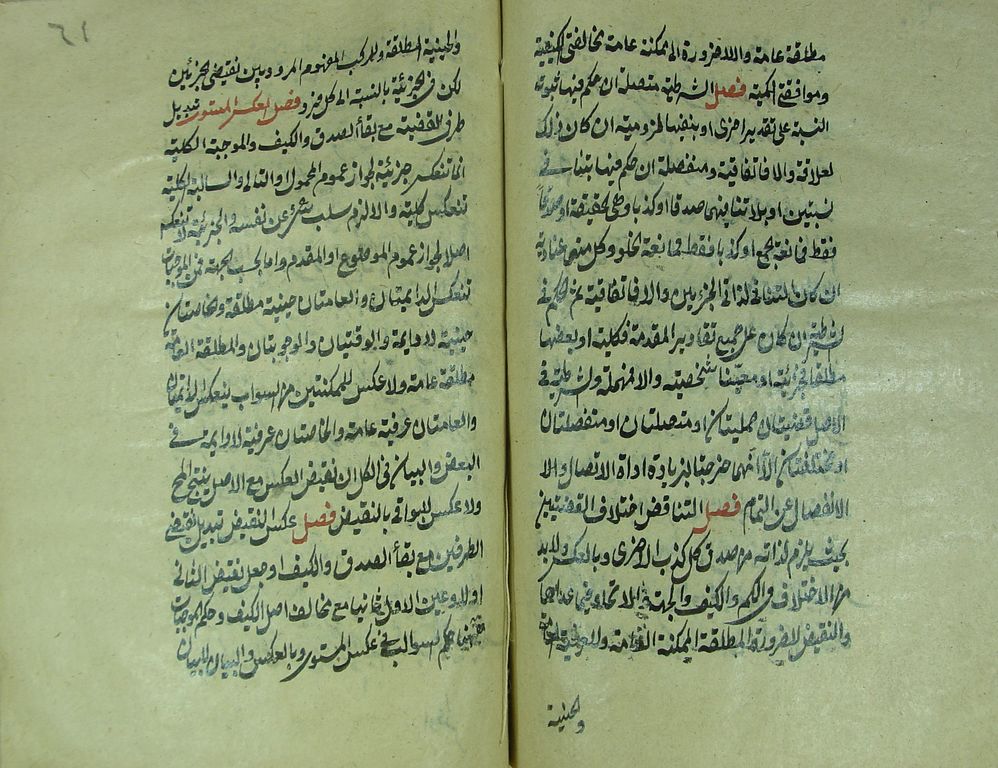 مطلقة عامة واللاضرورة الى ممكنة عامة مخالفتى الكيفية
وموافقتى الكمية فصل الشرطية متصلة ان حكم فيها بثبوت
النسبة على تقدير اخرى او بنفيها لزومية ان كان ذلك
لعلاقة والا فاتفاقية ومنفصلة ان حكم فيها بتنافى
نسبتين او بلا تنافيهما صدقا وكذبا وهى الحقيقة او صدقا
فقط فمانعة الجمع او كذبا فقط فمانعة الخلو وكل منهما عنادية
ان كان التنافى لذاتى الجزئين والا فاتفاقية ثم الحكم فى
الشرطية ان كان على جميع تقادير المقدمة فكلية او بعضها
مطلقا فجزئية او معينا شخصيته والا فمهملة والشرطية فى
الاصل قضيتان حمليتان او متصلتان او منفصلتان
او مختلفتان الا انهما خرجتا بزيادة اداة الاتصال والا
الانفصال عن التمام فصل التناقض اختلاف القضيتين
بحيث يلزم لذاته من صدق كل كذب الاخرى وبالعكس ولا بد
من الاختلاف فى الكم والكيف والجهة والاتحاد فيما عداها
والنقيض للضرورة المطلقة الممكنة العامة وللعرفية العامة
والحينية
٦١
والحينية المطلقة وللمركب المفهوم المردد بين نقيضى الجزئين
لكن فى الجزئية بالنسبة الى كل فرد فصل العكس المستوى تبديل
طرفى القضية مع بقاء الصدق والكيف والموجبة الكلية
انما تنعكس جزئية لجواز عموم المحمول والتالى والسالبة الكلية
تنعكس كلية والا لزم سلب شئ عن نفسه والجزئية لا تنعكس
اصلا لجواز عموم الموضوع او المقدم واما بحسب الجهة فمن الموجبات
تنعكس الدايمتان والعامتان حينية مطلقة والخاصتان
حينية لا دايمة والوقتيان والوجوديتان والمطلقة العامة
مطلقة عامة ولا عكس للممكنتين من السوالب تنعكس الدايمتان
والعامتان عرفية عامة والخاصتان عرفية لا دايمة فى
البعض والبيان فى الكل ان نقيض العكس مع الاصل ينتج المح
ولا عكس للبواقى بالنقيض فصل عكس النقيض تبديل نقيضى
الطرفين مع بقاء الصدق والكيف او جعل نقيض الثانى
اولا وعين الاول ثانيا مع مخالفة اصل الكيف وحكم الموجبات
ههنا حكم السوالب فى عكس المستوى وبالعكس والبيان البيان